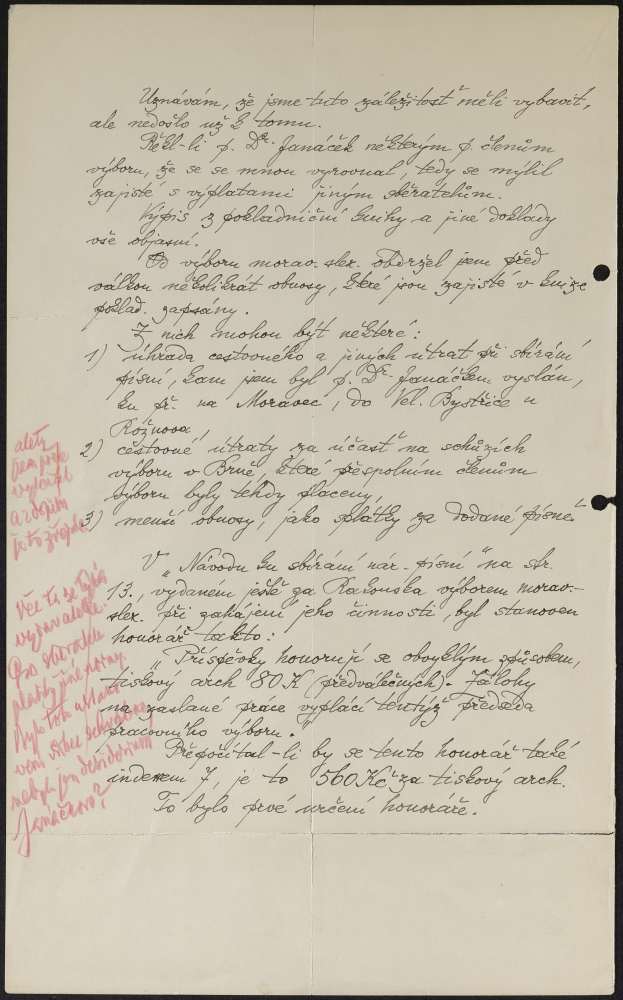 Uznávám, že jsme tuto záležitosť měli vybavit,
ale nedošlo už k tomu.
Řekl-li p. Dr. Janáček některým p. členům
výboru, že se se mnou vyrovnal, tedy se mýlil
zajisté s výplatami jiným sběratelům.
Výpis z pokladniční knihy a jiné doklady
vše objasní.
Od výboru morav.-slez. obdržel jsem před
válkou několikrát obnosy, které jsou zajisté v knize
poklad. zapsány.
Z nich mohou být některé:
1) úhrada cestovného a jiných útrat při sbírání
písní, kam jsem byl p. Dr. Janáčkem vyslán,
ku př. na Moravec, do Vel. Bystřice u
Rožnova,
2) cestovné útraty za účasť na schůzích
výboru v Brně, které přespolním členům
výboru byly tehdy placeny,
3) menší obnosy, jako splátky za dodané písně.
V „Návodu ku sbírání nár. písní" na str.
13., vydaném ještě za Rakouska výborem morav.-
slez. při zahájení jeho činnosti, byl stanoven
honorář takto:
„Příspěvky honorují se obvyklým způsobem,
tiskový arch 80 K (předválečných). Zálohy
na zaslané práce vyplácí tentýž předseda
pracovního výboru."
Přepočítal-li by se tento honorář také
indexem 7, je to 560 Kč za tiskový arch.
To bylo prvé určení honoráře.
alety
a zdejším
Vec ti se týká
vydavatele.
Pro sběratele
platily jiné normy.
Bylo toto
nebylo jen desideriem
Janáčkovo?